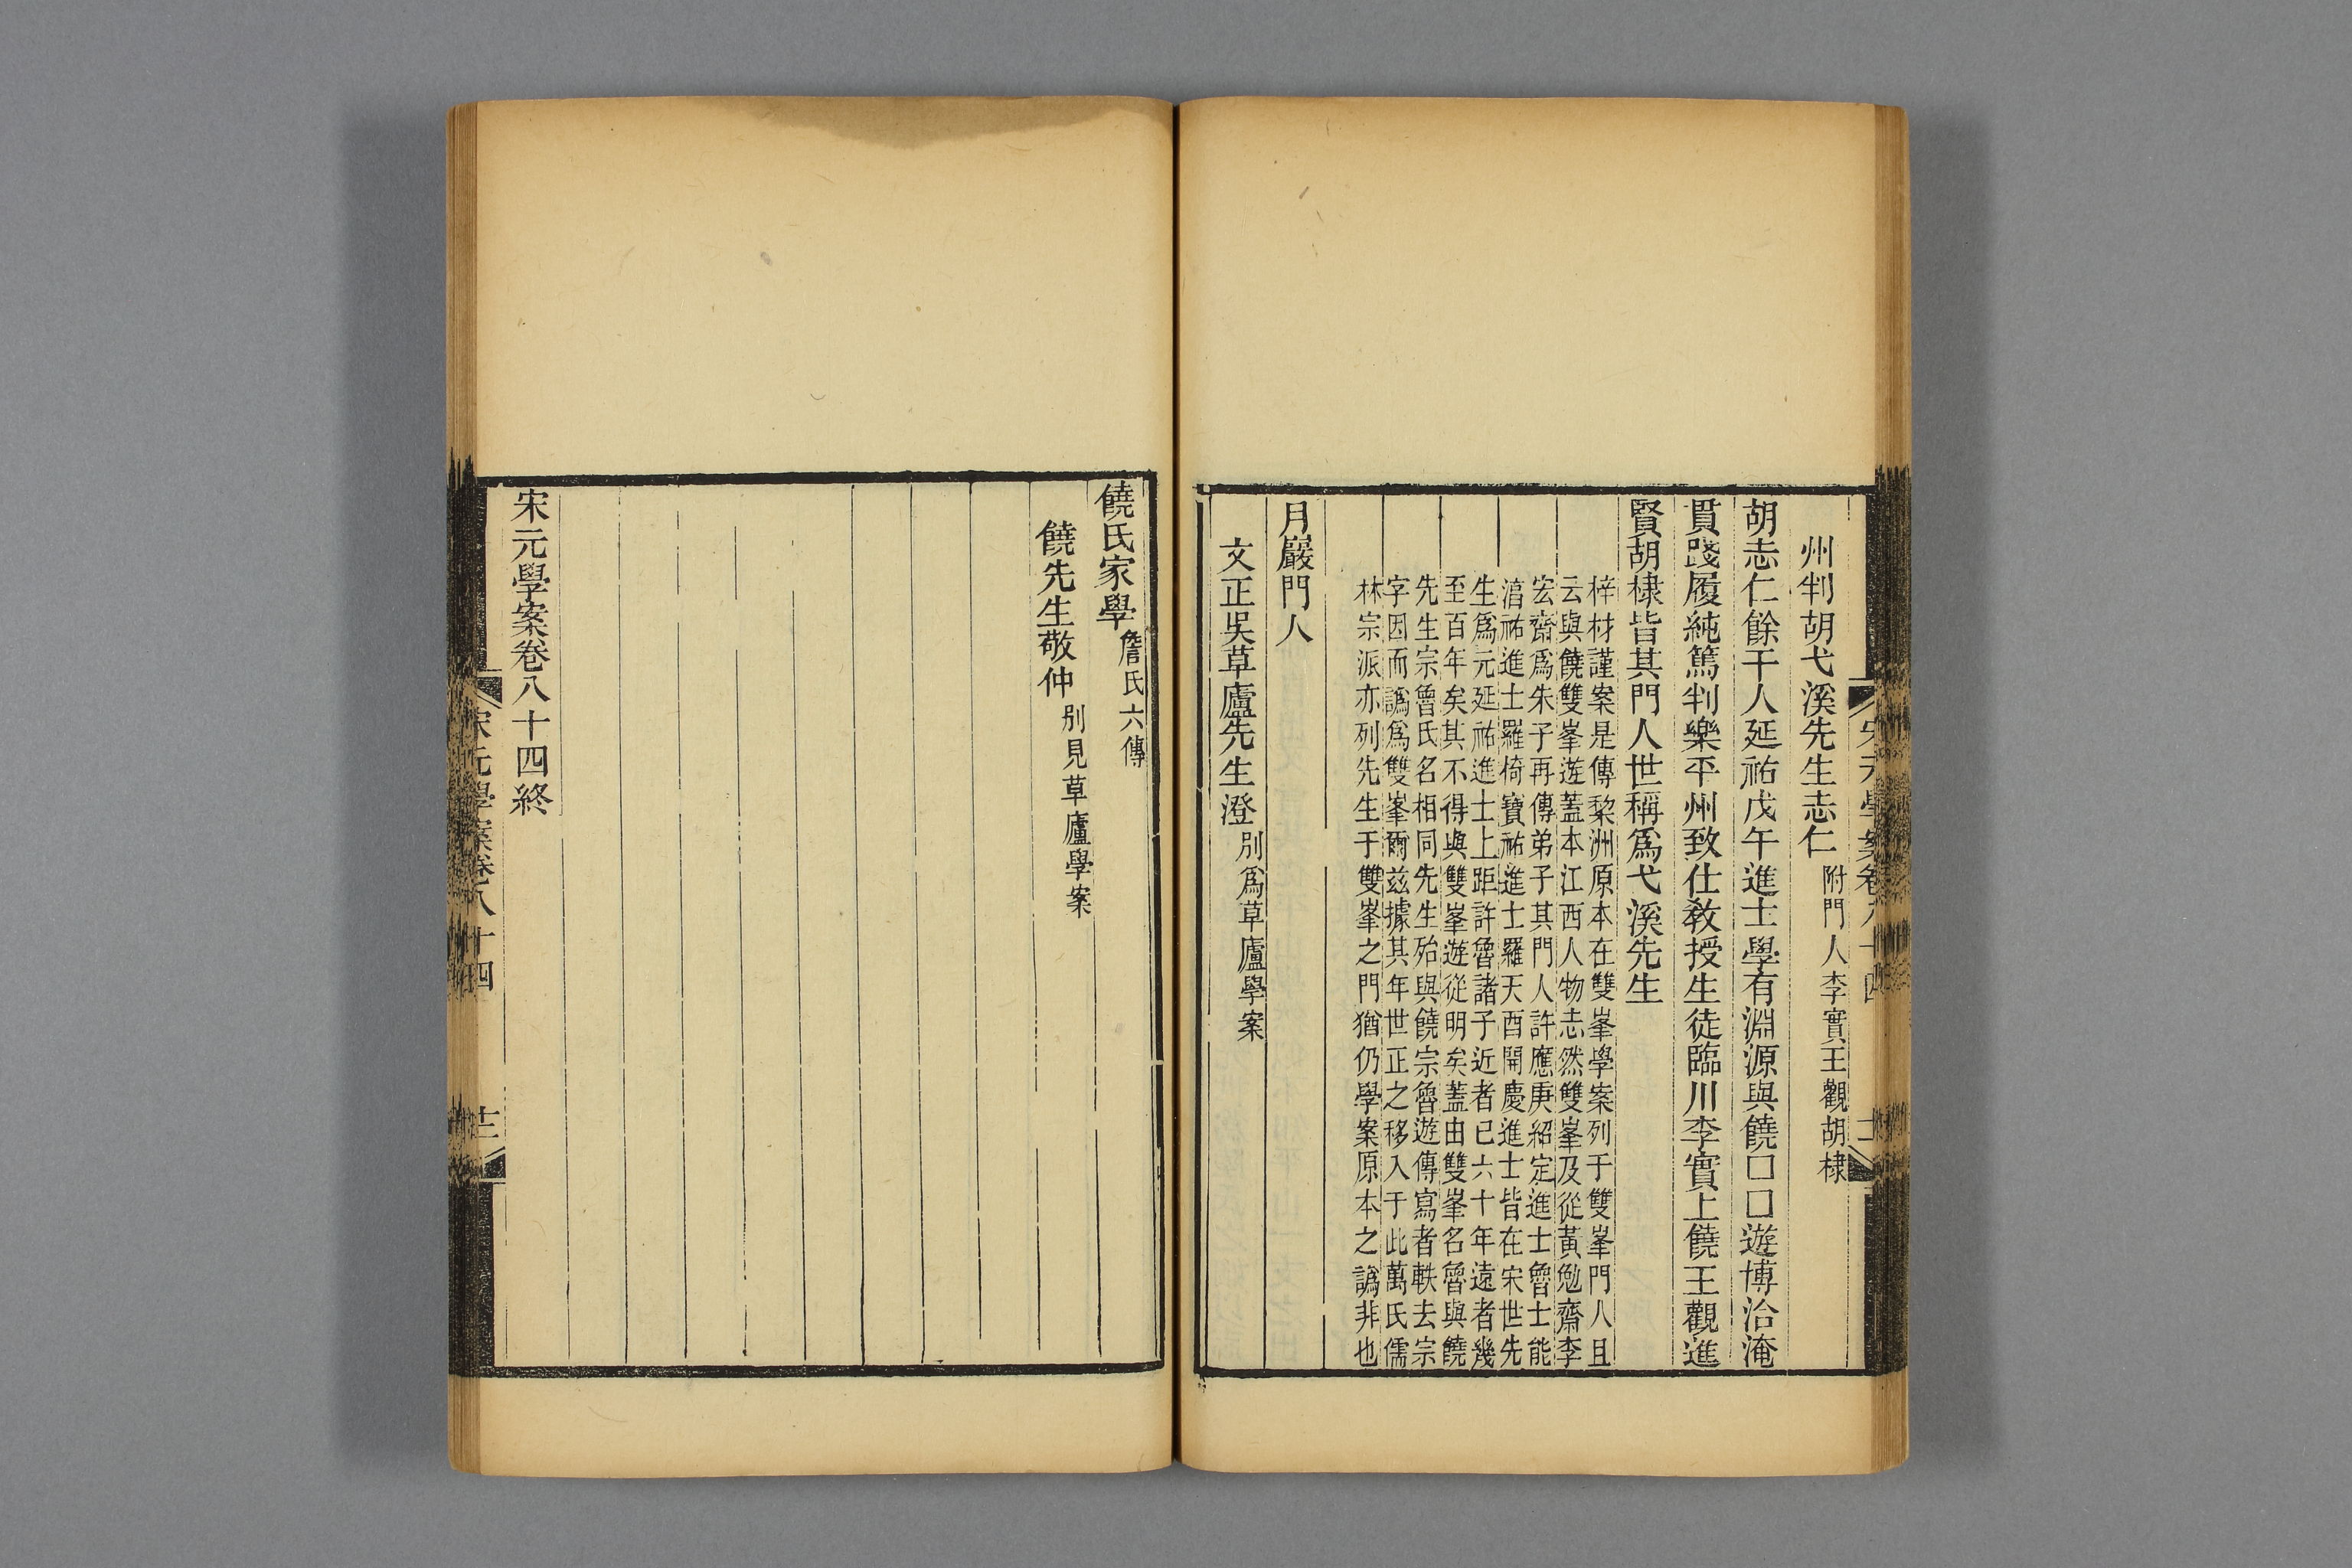 州判胡弋溪先生志仁 附門人李實王觀胡棣
胡志仁餘干人延祐戊午進士學有淵源與饒□□遊博洽淹
貫踐履純篤判樂平州致仕敎授生徒臨川李實上饒王觀進
賢胡棣皆其門人世稱爲弋溪先生
梓材謹案是傳棃洲原本在雙峯學案列于雙峯門人且
云與饒雙峯遊蓋本江西人物志然雙峯及從黃勉齋李
宏齋爲朱子再傳弟子其門人許應庚紹定進士魯士能
淳祐進士羅椅寶祐進士羅天酉開慶進士皆在宋世先
生爲元延祐進士上距許魯諸子近者已六十年遠者幾
至百年矣其不得與雙峯遊從明矣蓋由雙峯名魯與饒
先生宗魯氏名相同先生殆與饒宗魯遊傳寫者軼去宗
字因而譌爲雙峯爾茲據其年世正之移入于此萬氏儒
林宗派亦列先生于雙峯之門猶仍學案原本之譌非也
月巖門人
文正吳草廬先生澄 別爲草廬學案
宋元學案卷八十四
饒氏家學 詹氏六傳
饒先生敬仲 別見草廬學案
宋元學案卷八十四終
宋元學案卷八十四